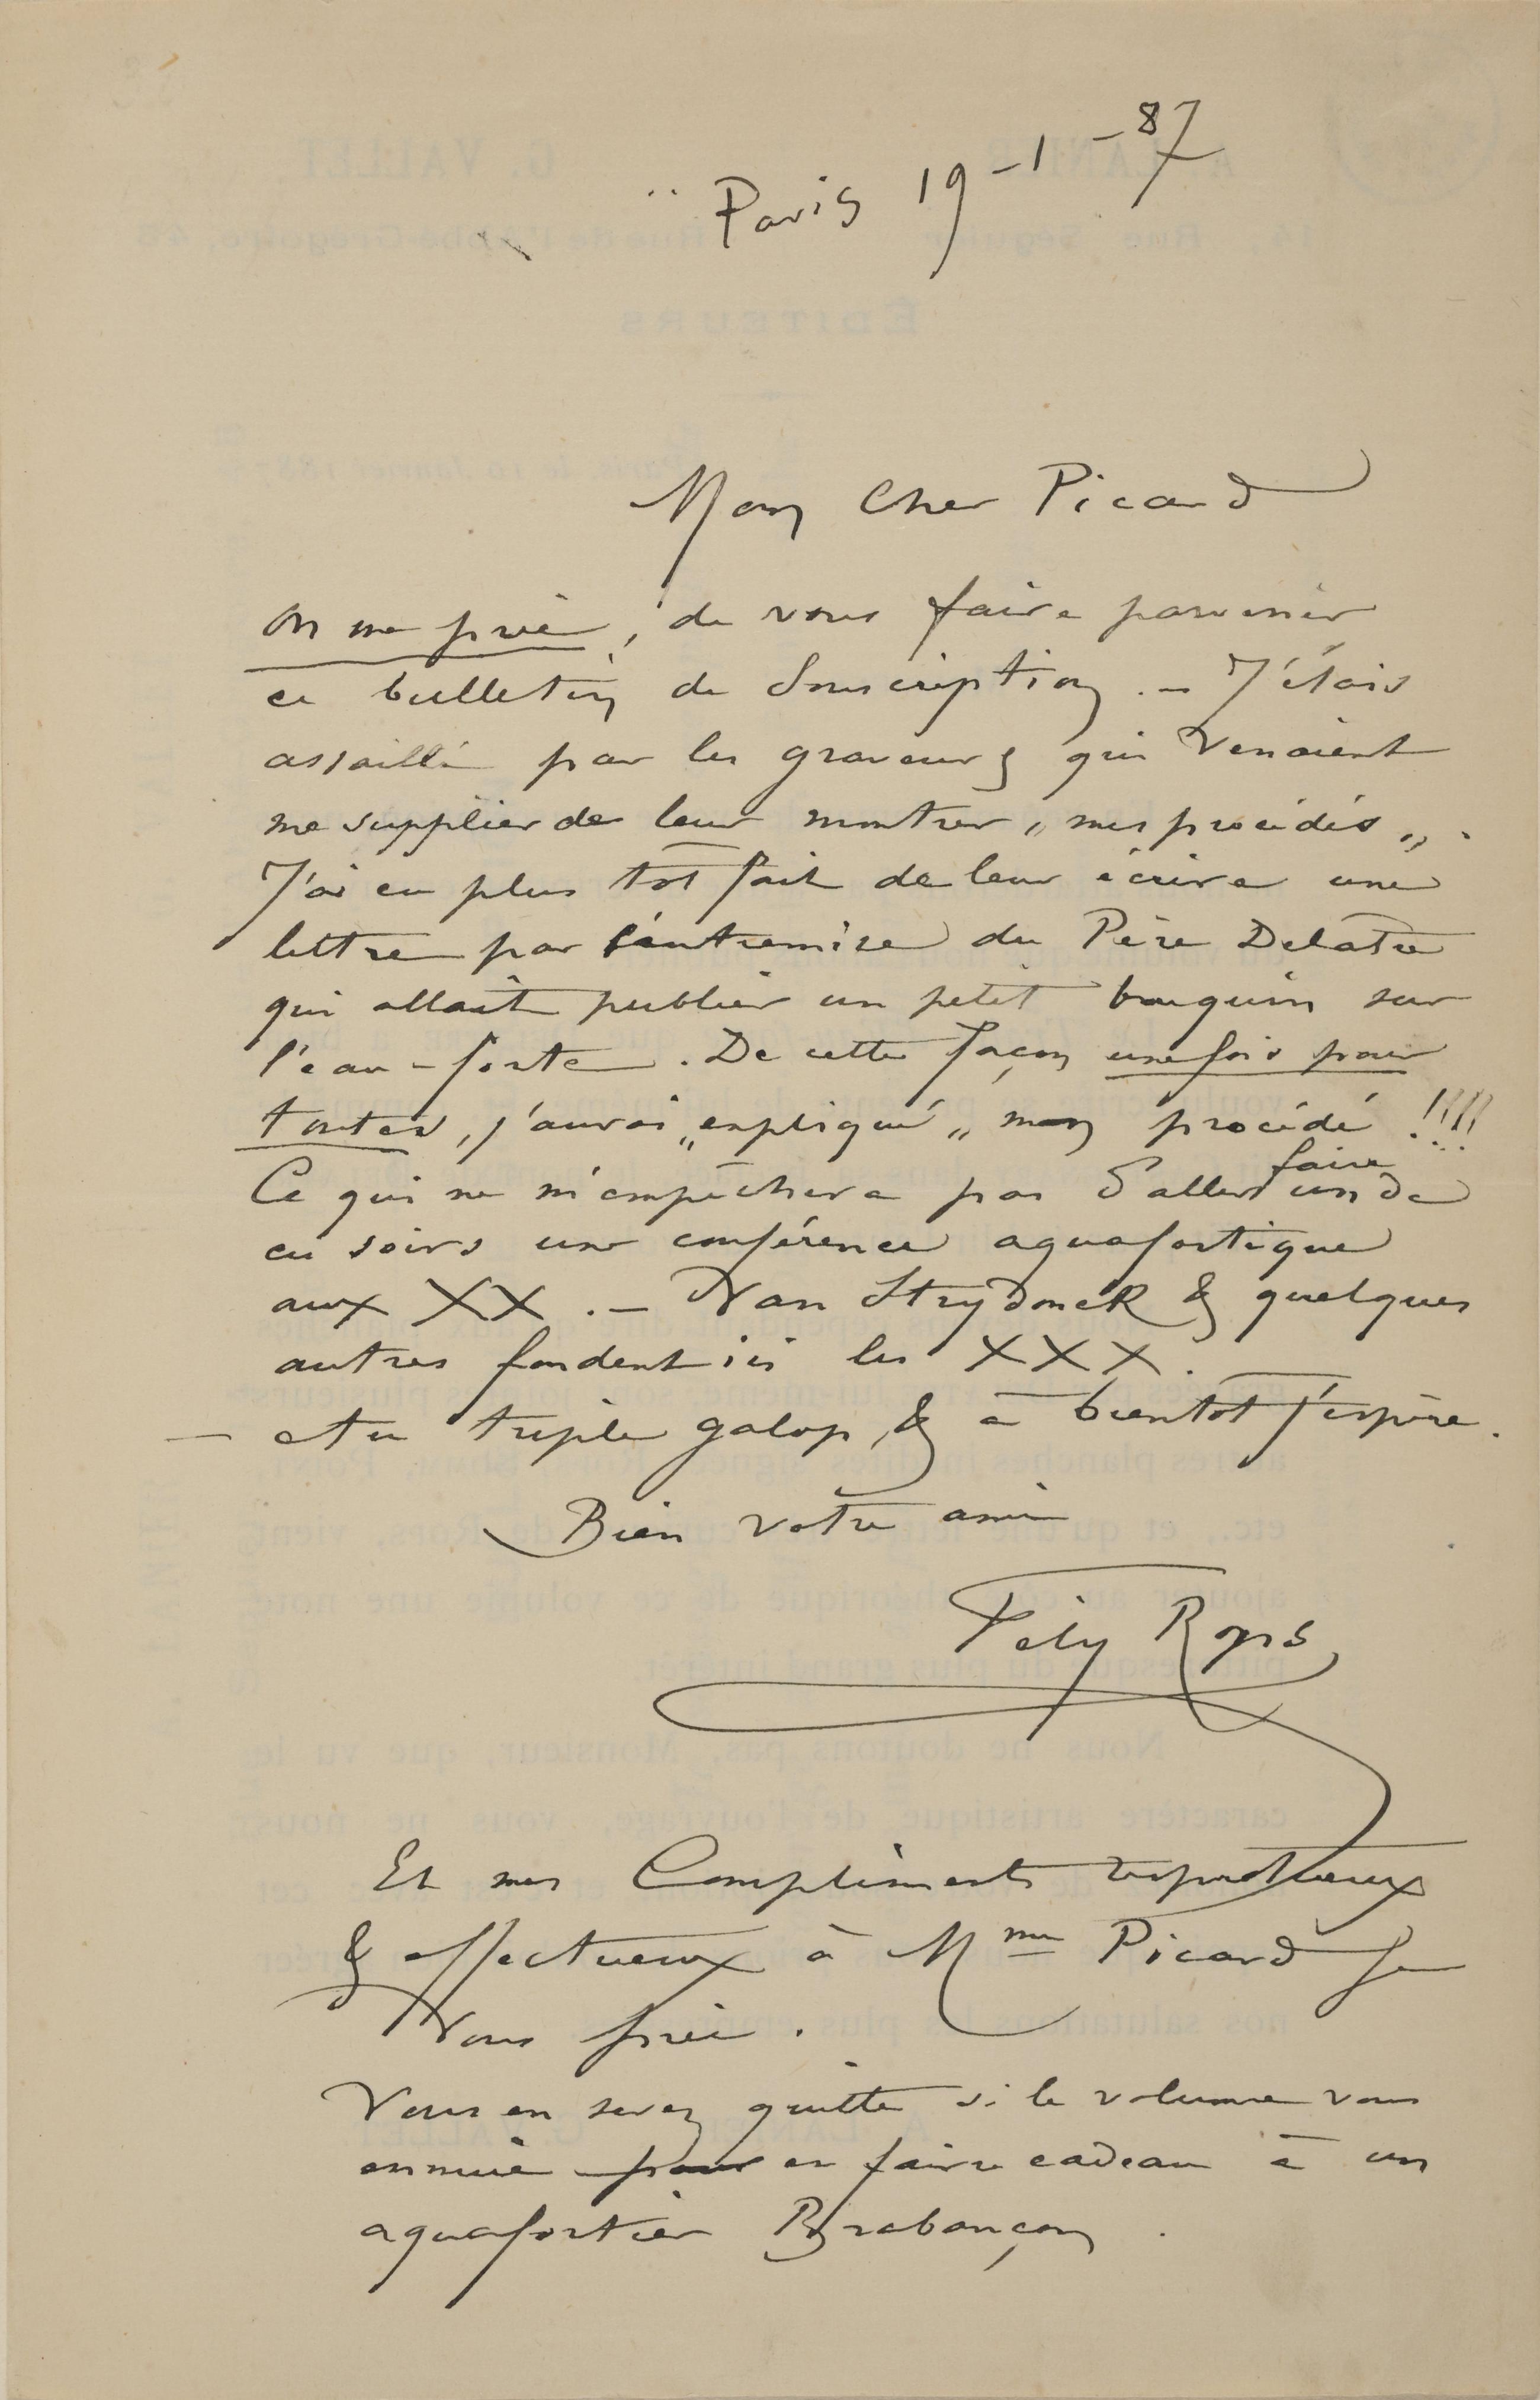 Paris 19-1-87
Mon Cher Picard
On me prie, de vous faire parvenir
ce bulletin de Souscription. — J'étais
assailli par les graveurs qui venaient
me supplier de leur montrer „mes procédés„.
J'ai eu plus tôt fait de leur écrire une
lettre par l'entremise du Père Delatre
qui allait publier un petit bouquin sur
l'eau-forte. De cette façon une fois pour
toutes, j'aurai „expliqué„ mon procédé !!!!
Ce qui ne m'empêchera pas d'aller faire un de
ces soirs une conférence aquafortique
aux XX. — Van Strydonck & quelques
autres fondent ici les XXX.
— et au triple galop, & à bientôt j'espère.
Bien votre ami
Fély Rops
Et mes Compliments respectueux
& affectueux à Mme Picard je
Vous prie.
Vous en serez quitte si le volume vous
ennuie pour en faire cadeau à un
aquafortier Brabançon.
ÉDITEURS